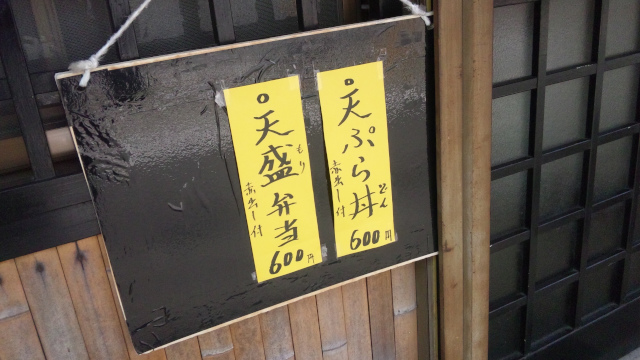 天ぷら丼
どん
赤出し付
600円
天盛弁当
もり
赤出し付
600円